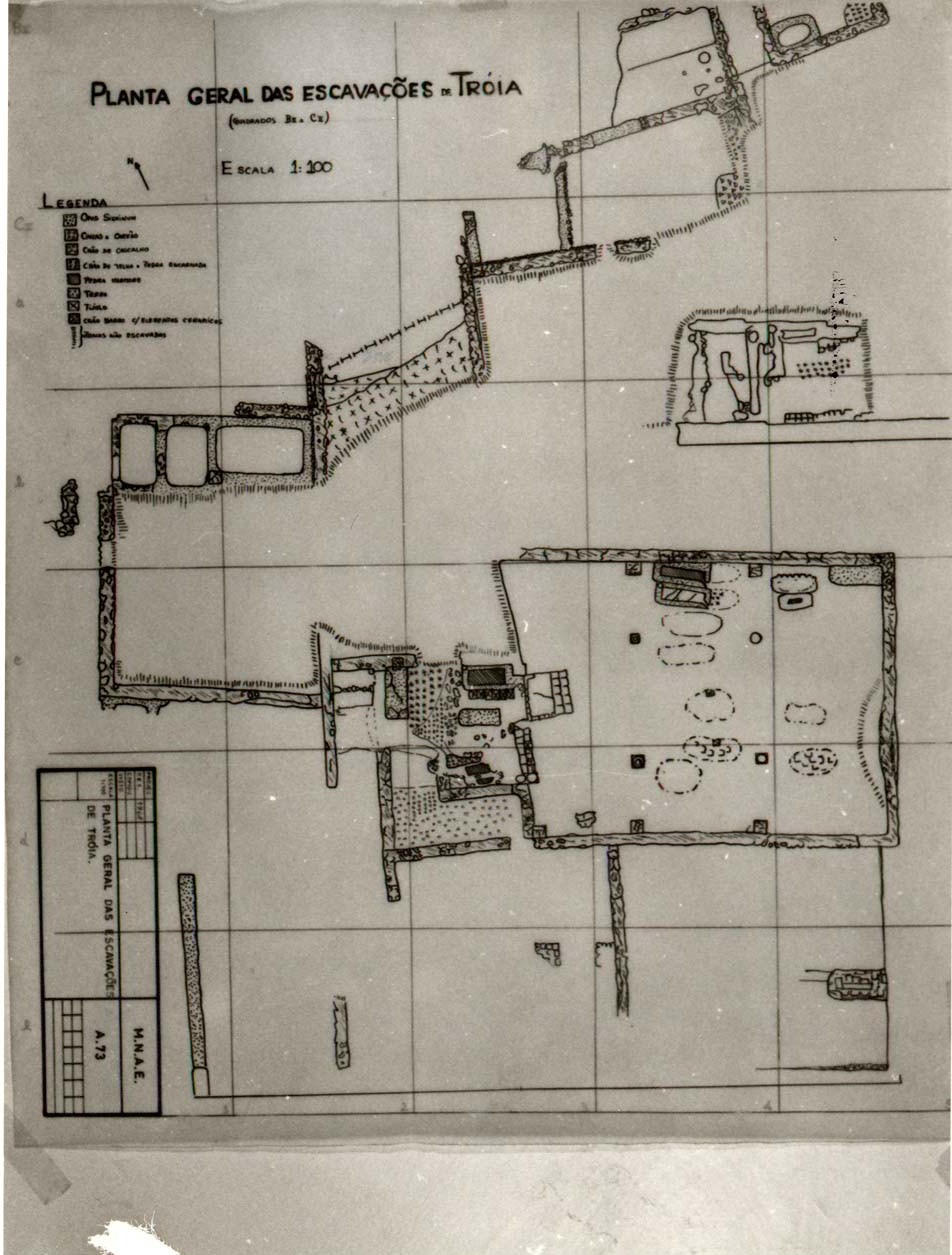 PLANTA GERAL DAS ESCAVAÇÕES DE TRÓIA
(QUADRADOS BE A CE)
N
ESCALA 1:100
LEGENDA
OPUS SIGNINUM
CINZAS E CARVÃO
CHÃO DE CASCALHO
CHÃO DE TELHA E PEDRA ENCARNADA
PEDRA MÁRMORE
TERRA
TIJOLO
CHÃO BARRO C/ELEMENTOS CERÂMICOS
ZONAS NÃO ESCAVADAS
PLANTA GERAL DAS ESCAVAÇÕES
DE TRÓIA.
M.N.A.E.
A.73
1 2 3 4